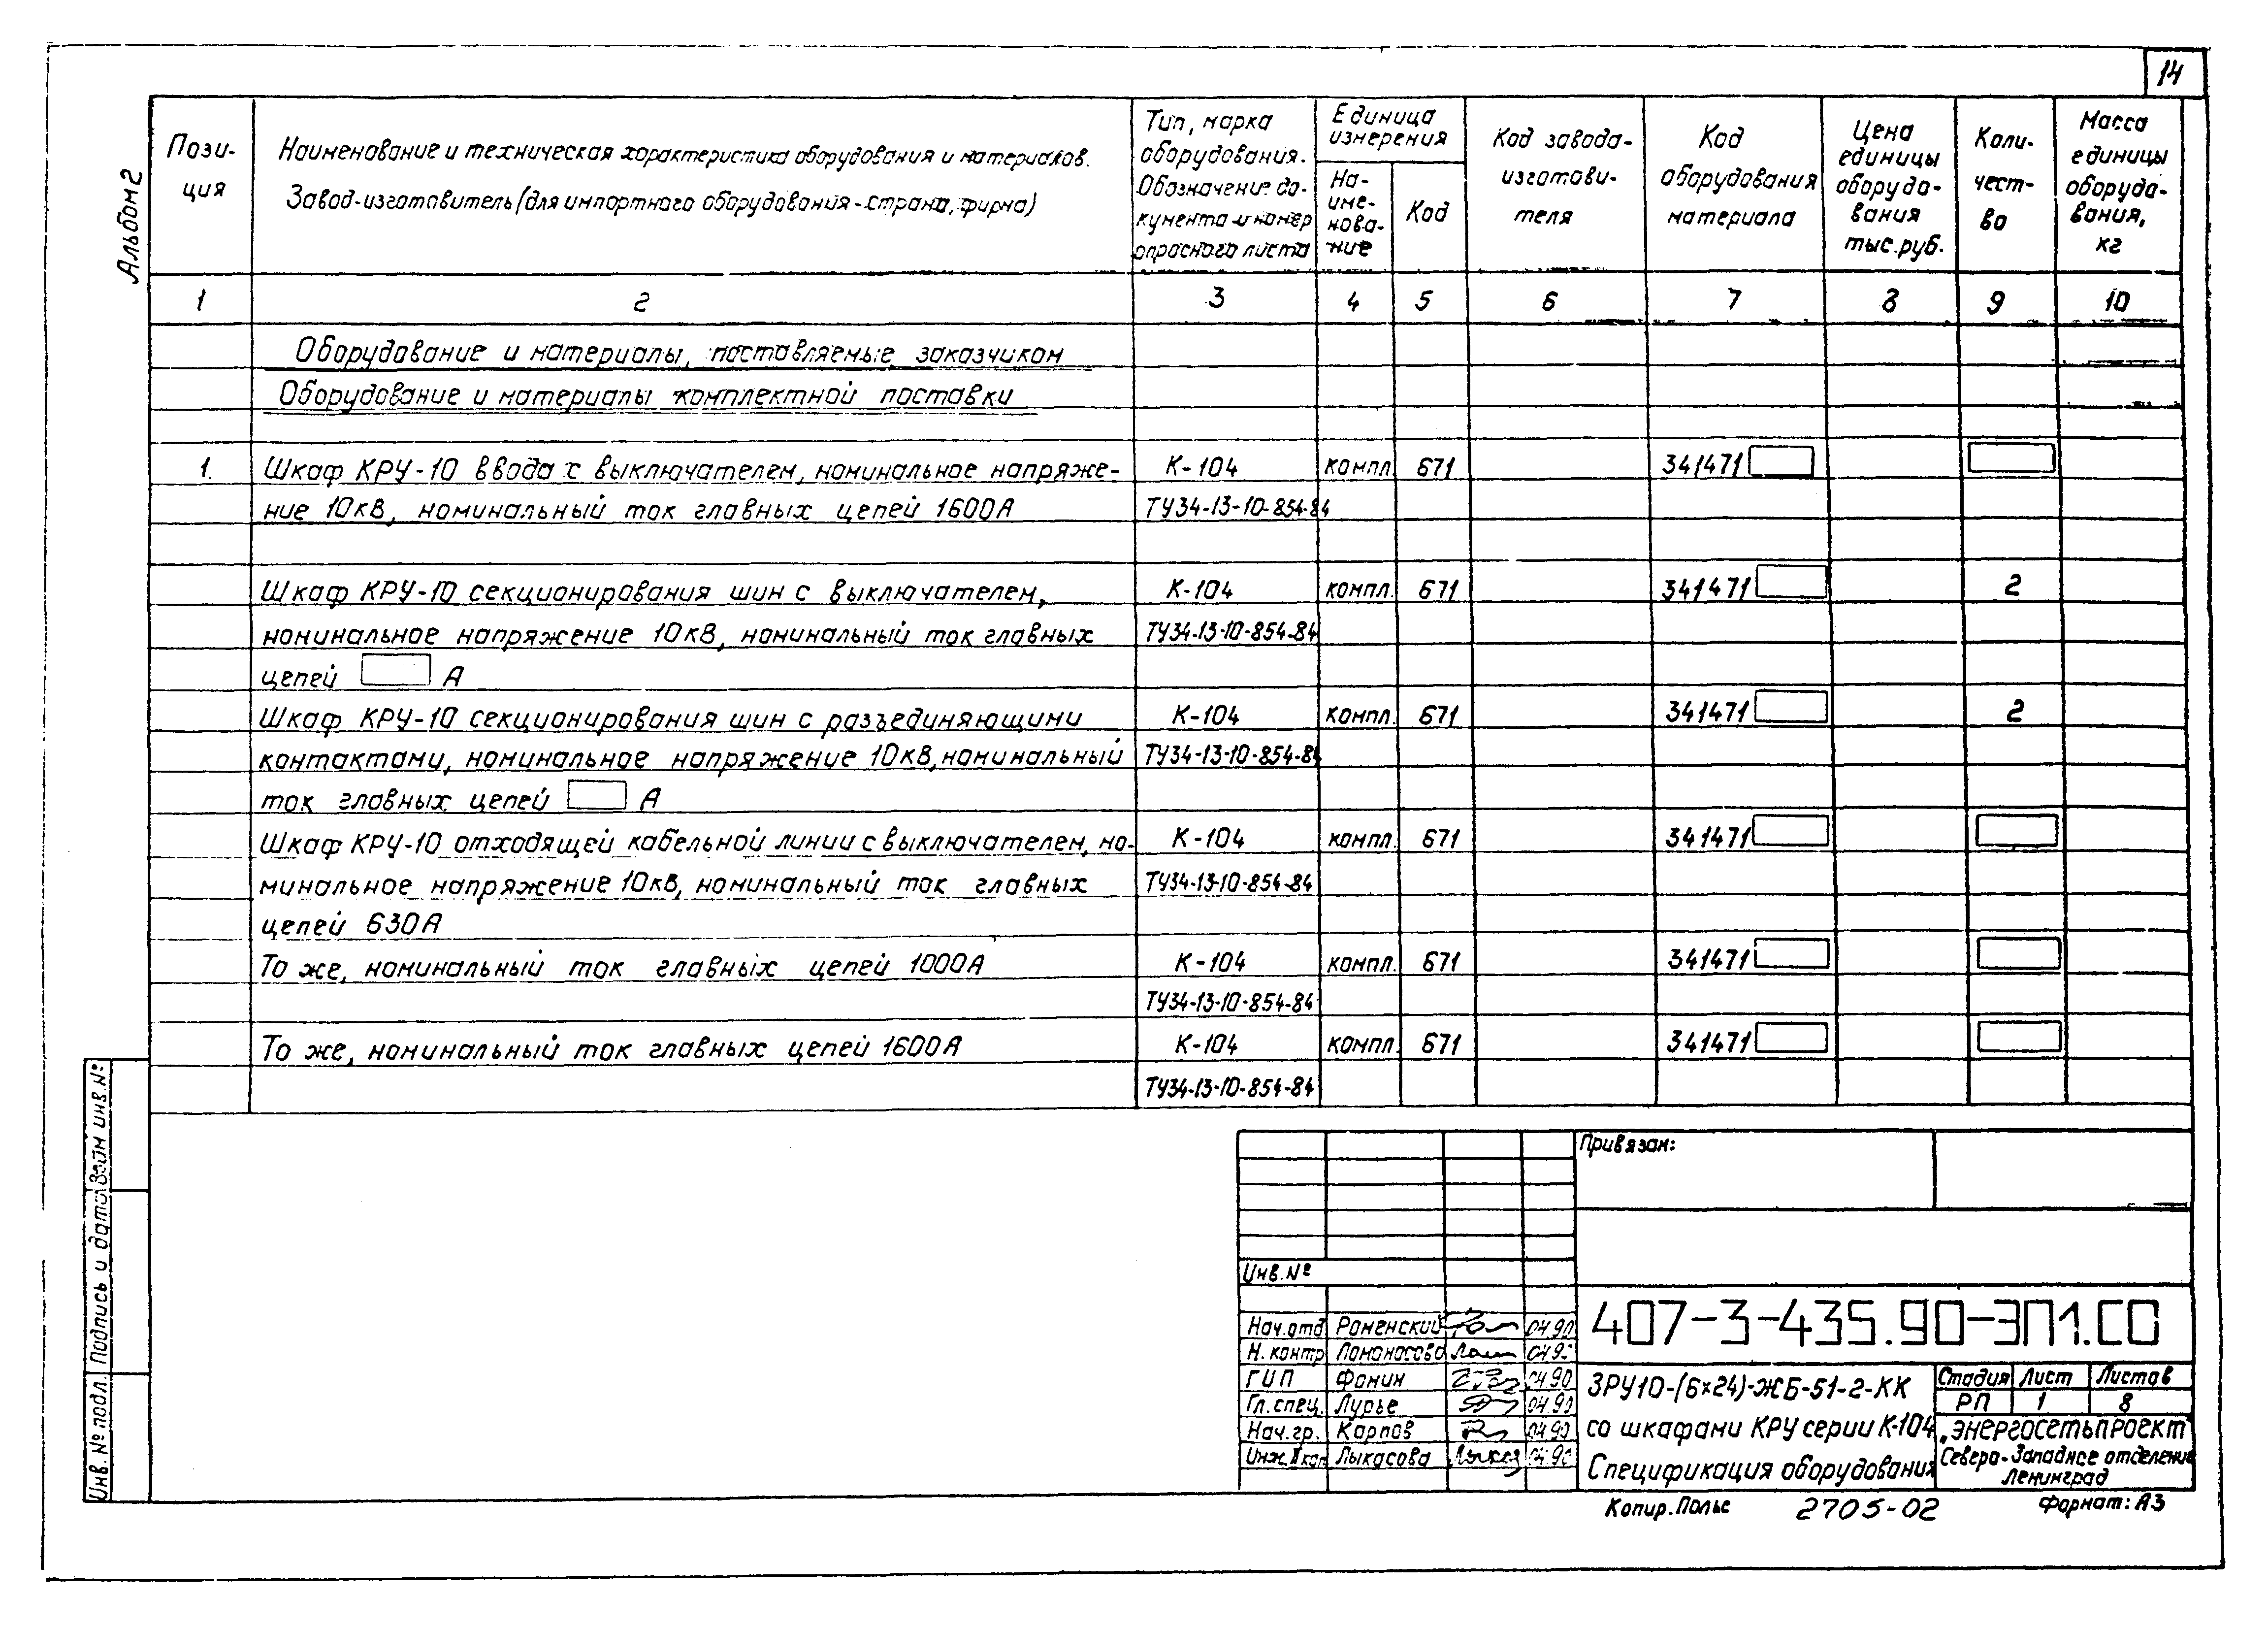 14
Альбом 2
Пози-
ция
Наименование и техническая характеристика оборудования и материалов.
Завод-изготовитель (для импортного оборудования - страна, фирма)
Тип, марка
оборудования.
Обозначение до-
кумента и номер
опросного листа
Единица
измерения
На-
име-
нова-
ние
Код
Код завода-
изготови-
теля
Код
оборудования
материала
Цена
единицы
оборудо-
вания
тыс.руб.
Коли-
чест-
во
Масса
единицы
оборудо-
вания,
кг
1 2 3 4 5 6 7 8 9 10
Оборудование и материалы, поставляемые заказчиком
Оборудование и материалы комплектной поставки
1. Шкаф КРУ-10 ввода с выключателем, номинальное напряже- К-104 компл. 671 341471
ние 10кВ, номинальный ток главных цепей 1600А ТУ34-13-10-854-84
Шкаф КРУ-10 секционирования шин с выключателем, К-104 компл. 671 341471 2
номинальное напряжение 10кВ, номинальный ток главных ТУ34-13-10-854-84
цепей А
Шкаф КРУ-10 секционирования шин с разъединяющими К-104 компл. 671 341471 2
контактами, номинальное напряжение 10кВ, номинальный ТУ34-13-10-854-84
ток главных цепей А
Шкаф КРУ-10 отходящей кабельной линии с выключателем, но- К-104 компл. 671 341471
минальное напряжение 10кВ, номинальный ток главных ТУ34-13-10-854-84
цепей 630А
То же, номинальный ток главных цепей 1000А К-104 компл. 671 341471
ТУ34-13-10-854-84
То же, номинальный ток главных цепей 1600А К-104 компл. 671 341471
ТУ34-13-10-854-84
Взам инв.№
Подпись и дата
Инв.№ подл.
Привязан:
Инв.№
407-3-435.90-ЭП1.СО
Нач.отд Роменский 04.90
Н. контр Ломоносова
ГИП Фомин 04.90
Гл.спец. Лурье 04.90
Нач.гр. Карпов 04.90
Инж.II кат Лыкосова 04.90
ЗРУ10-(6×24)-ЖБ-51-2-КК
со шкафами КРУ серии К-104
Спецификация оборудования
Стадия Лист Листов
РП 1 8
"Энергосетьпроект"
Северо-Западное отделение
Ленинград
Копир.Полье 2705-02 Формат: А3